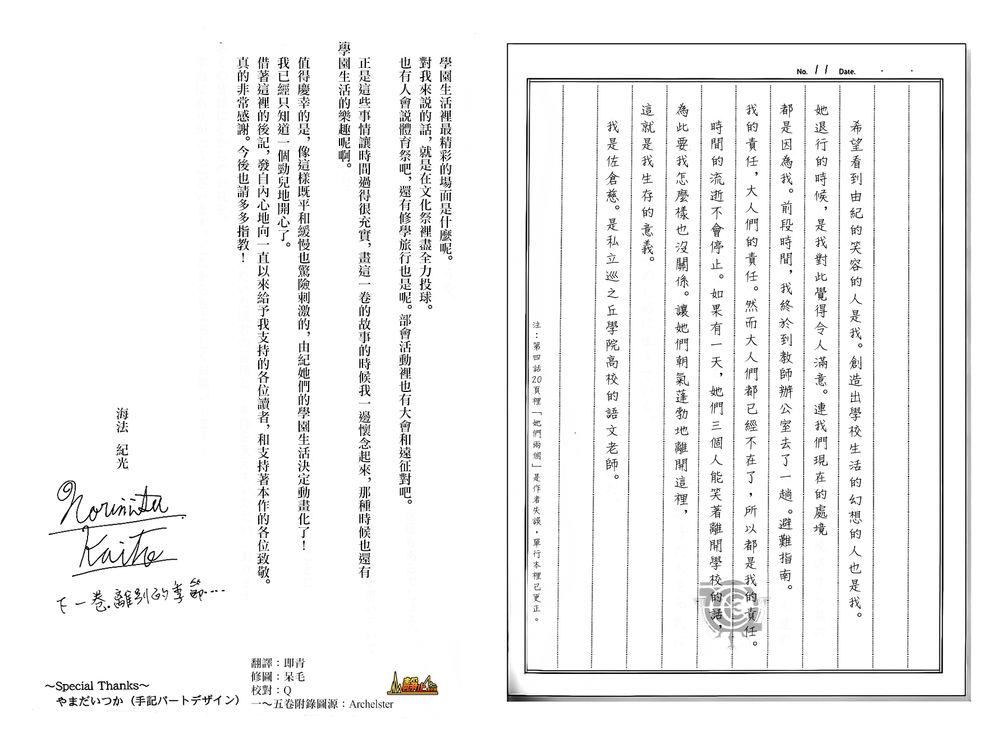 No. 11 Date. . .
希望看到由紀的笑容的人是我。創造出學校生活的幻想的人也是我。
她退行的時候，是我對此覺得令人滿意。連我們現在的處境
都是因為我。前段時間，我終於到教師辦公室去了一趟。避難指南。
我的責任，大人們的責任。然而大人們都已經不在了，所以都是我的責任。
時間的流逝不會停止。如果有一天，她們三個人能笑著離開學校的話，
為此要我怎麼樣也沒關係。讓她們朝氣蓬勃地離開這裡，
這就是我生存的意義。
我是佐倉慈。是私立巡之丘學院高校的語文老師。
注：第四話20頁裡「她們兩個」是作者失誤，單行本裡已更正。
學園生活裡最精彩的場面是什麼呢。
對我來說的話，就是在文化祭裡盡全力投球。
也有人會說體育祭吧，還有修學旅行也是呢。部會活動裡也有大會和遠征對吧。
正是這些事情讓時間過得很充實，畫這一卷的故事的時候我一邊懷念起來，那種時候也還有
學園生活的樂趣呢啊。
值得慶幸的是，像這樣既平和緩慢也驚險刺激的，由紀她們的學園生活決定動畫化了！
我已經只知道一個勁兒地開心了。
借著這裡的後記，發自內心地向一直以來給予我支持的各位讀者，和支持著本作的各位致敬。
真的非常感謝。今後也請多多指教！
海法 紀光
Norimitsu
Kaiho
下一卷.離別的季節…
～Special Thanks～
やまだいつか（手記パートデザイン）
翻譯：即青
修圖：呆毛
校對：Q
一～五卷附錄圖源：Archelster